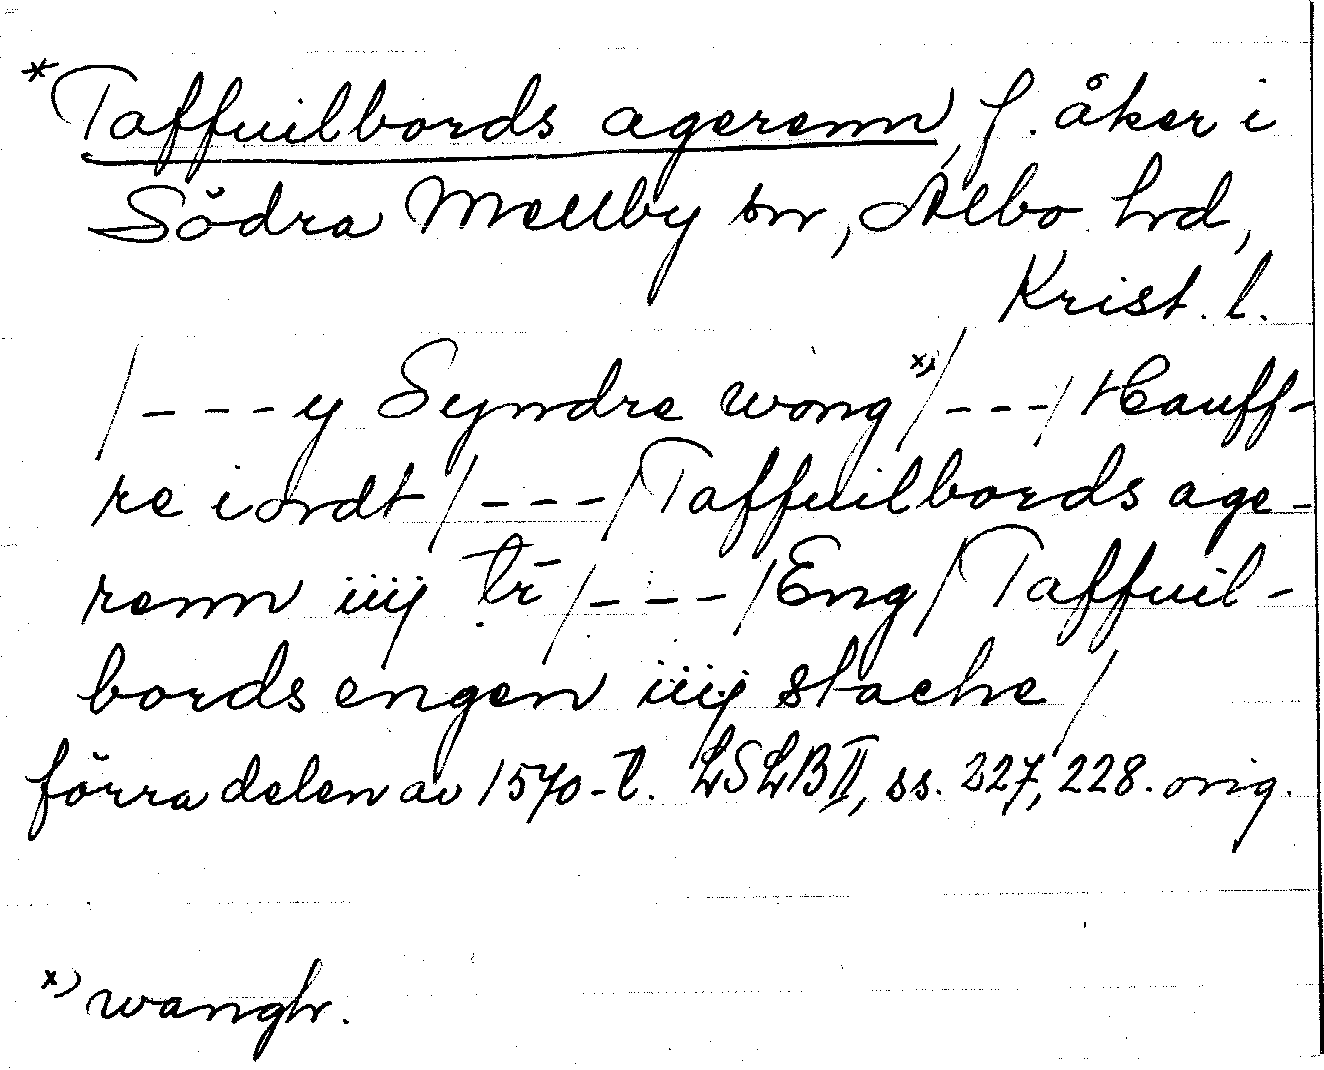 *Taffuilbords agerenn, f. åker i
Södra Mellby sn, Albo hd,
Krist. l.
/---y Syndre wong x)/---/Hauff-
re iordt/---/Taffuilbords age-
renn iiij tr̄/---/Eng/Taffuil-
bords engen iiij stache/
förra delen av 1570-t. LSLB II, ss. 227, 228. orig.
x) wangh.